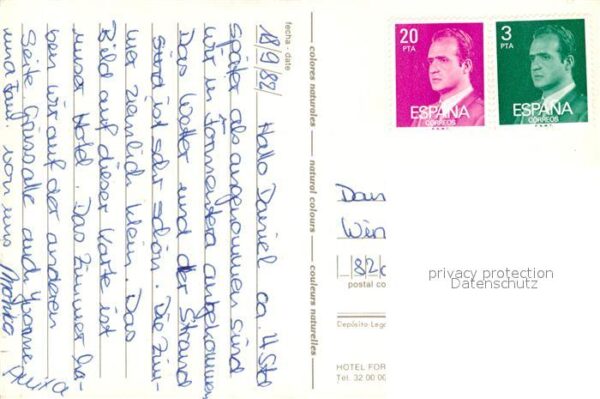 fecha - date
18/9/82
Hallo Daniel ca. 4 Std
später als angenommen sind
wir in angekommen
Das Wetter und der Strand
sind ist sehr schön. Die Zim-
mer ziemlich klein. Das
Bild auf dieser Karte ist
unser Hotel. Das Zimmer ha-
ben wir auf der anderen
Seite. Grüss alle auch Yvonne
und Paul. von uns
Anita
colores naturales
natural colours
couleurs naturelles
20
PTA
ESPAÑA
CORREOS
3
PTA
ESPAÑA
CORREOS
Dan
Win
820
postal co
privacy protection
Datenschutz
Depósito Lega
HOTEL FOR
Tel. 32 00 00